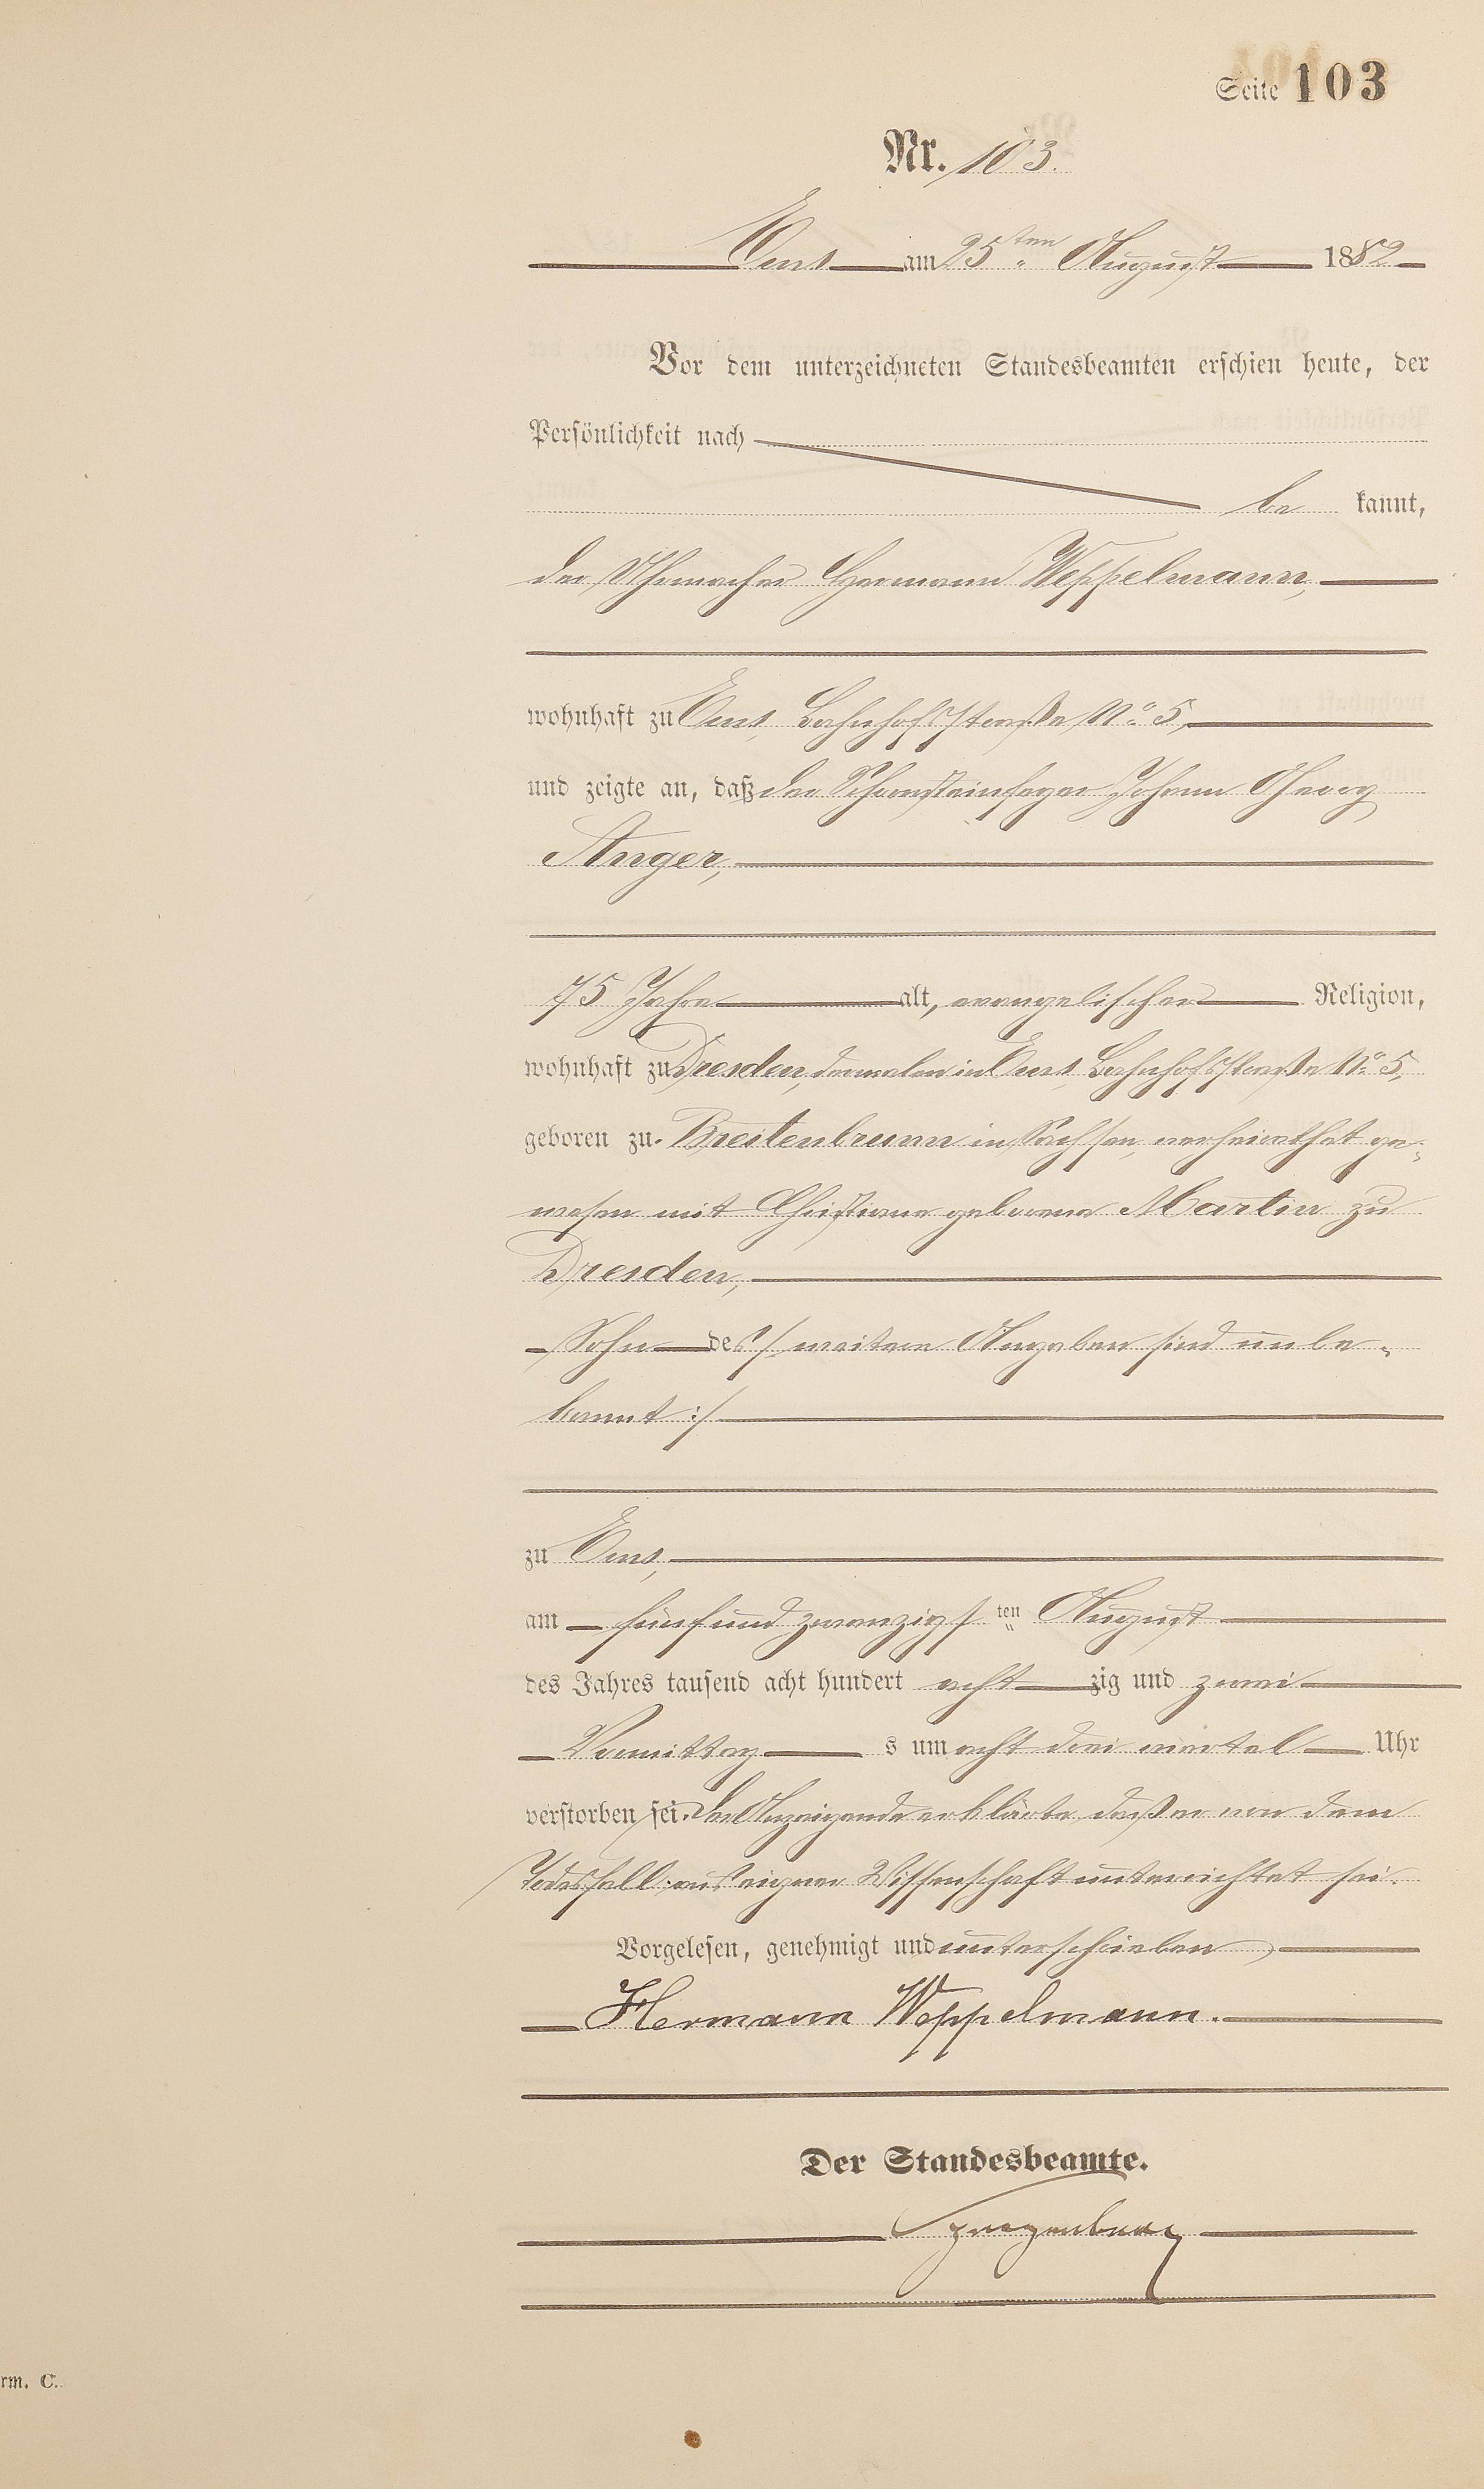 Seite 103
Nr. 103.
Ems am 25ten August 1882
Vor dem unterzeichneten Standesbeamten erschien heute, der
Persönlichkeit nach
be kannt,
der Uhrmacher Hermann Weppelmann,
wohnhaft zu Ems, Bahnhofsstraße No. 5,
und zeigte an, daß der Schornsteinfeger Johann Georg
Anger,
75 Jahre alt, evangelischer Religion,
wohnhaft zu Dresden, dermalen in Ems, Bahnhofsstraße No. 5,
geboren zu Breitenbrunn in Sachsen, verheirathet ge-
wesen mit Christiane geborene Martin zu
Dresden,
Sohn des /: weitere Angaben sind unbe-
kannt :/
zu Ems,
am fünfund zwanzigs ten August
des Jahres tausend acht hundert acht zig und zwei
Vormittag s um acht drei viertel Uhr
verstorben sei. Der Anzeigende erklärte, daß er von dem
Todesfall aus eigner Wissenschaft unterrichtet sei.
Vorgelesen, genehmigt und unterschrieben
Hermann Weppelmann.
Der Standesbeamte.
rm. C.